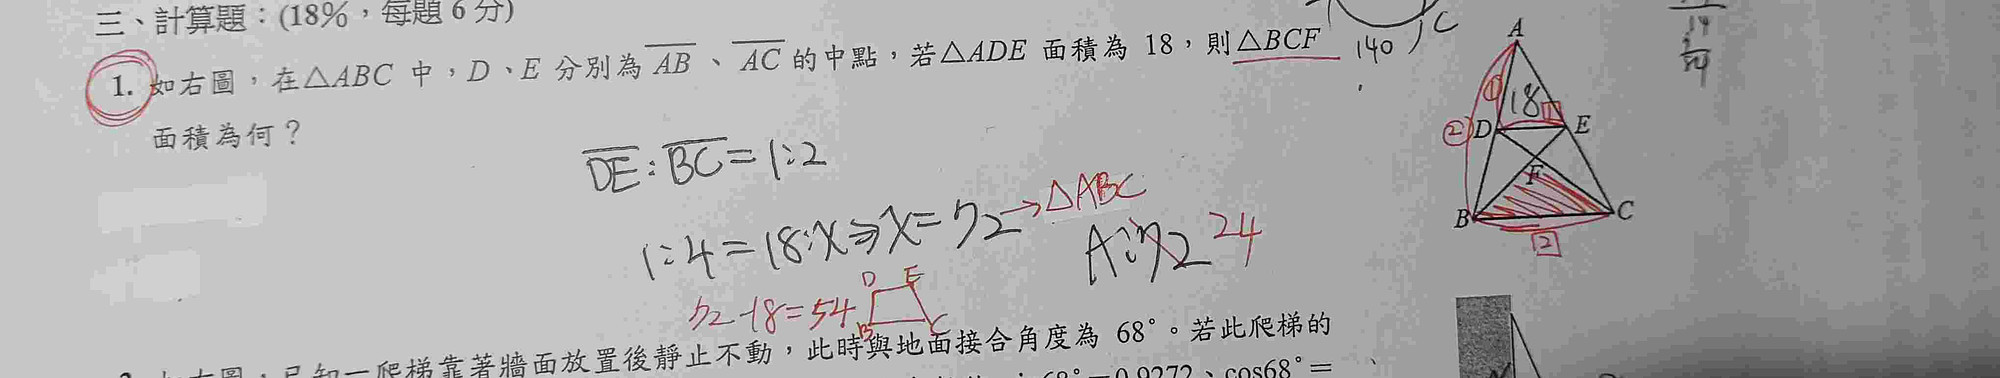 三、計算題：(18%，每題 6 分)
1. 如右圖，在△ABC 中，D、E 分別為 AB、AC 的中點，若△ADE 面積為 18，則△BCF
面積為何？
140
C
14
A
①
18
1
②
D
E
F
B
C
2
DE：BC＝1：2
1：4＝18：x⇒x＝72→△ABC
A：72 24
72-18＝54
D E
B C
如右圖，已知一爬梯靠著牆面放置後靜止不動，此時與地面接合角度為 68°。若此爬梯的
68°＝0.9272、cos68°＝